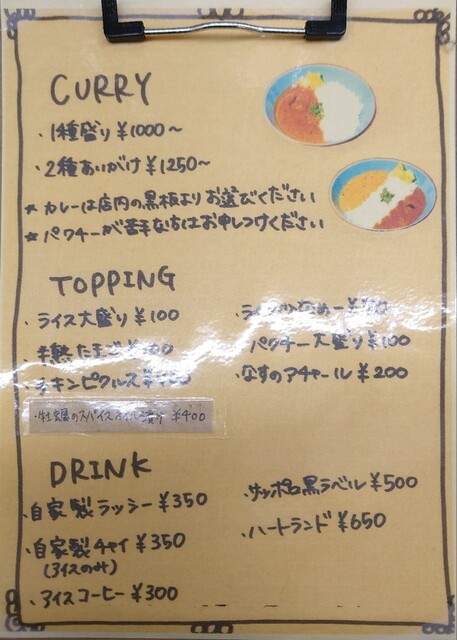 CURRY
・1種盛り ¥1000〜
・2種あいがけ ¥1250〜
★ カレーは店内の黒板よりお選びください
★ パクチーが苦手な方はお申しつけください
TOPPING
・ライス大盛り ¥100
・半熟たまご
・チキンピクルス
・牡蠣のスパイスオイル漬け ¥400
パクチー大盛り ¥100
・なすのアチャール ¥200
DRINK
・自家製ラッシー ¥350
・自家製チャイ ¥350
(アイスのみ)
・アイスコーヒー ¥300
・サッポロ黒ラベル ¥500
・ハートランド ¥650